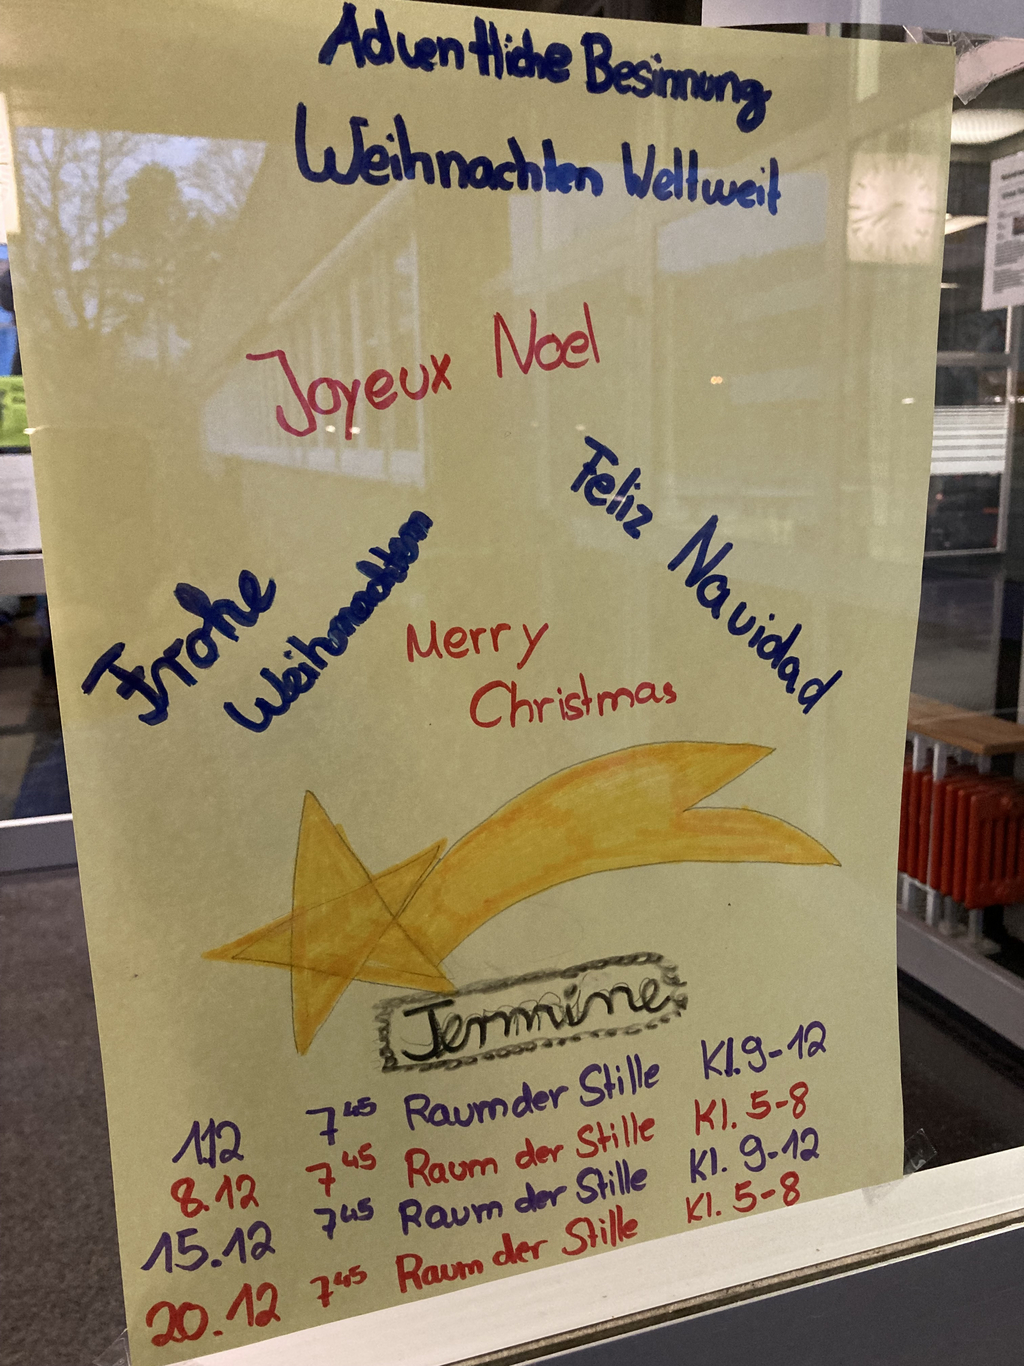 Adventliche Besinnung
Weihnachten Weltweit
Joyeux Noel
Feliz Navidad
Frohe Weihnachten
Merry
Christmas
Termine
1.12 7⁴⁵ Raum der Stille Kl. 9-12
8.12 7⁴⁵ Raum der Stille Kl. 5-8
15.12 7⁴⁵ Raum der Stille Kl. 9-12
20.12 7⁴⁵ Raum der Stille Kl. 5-8